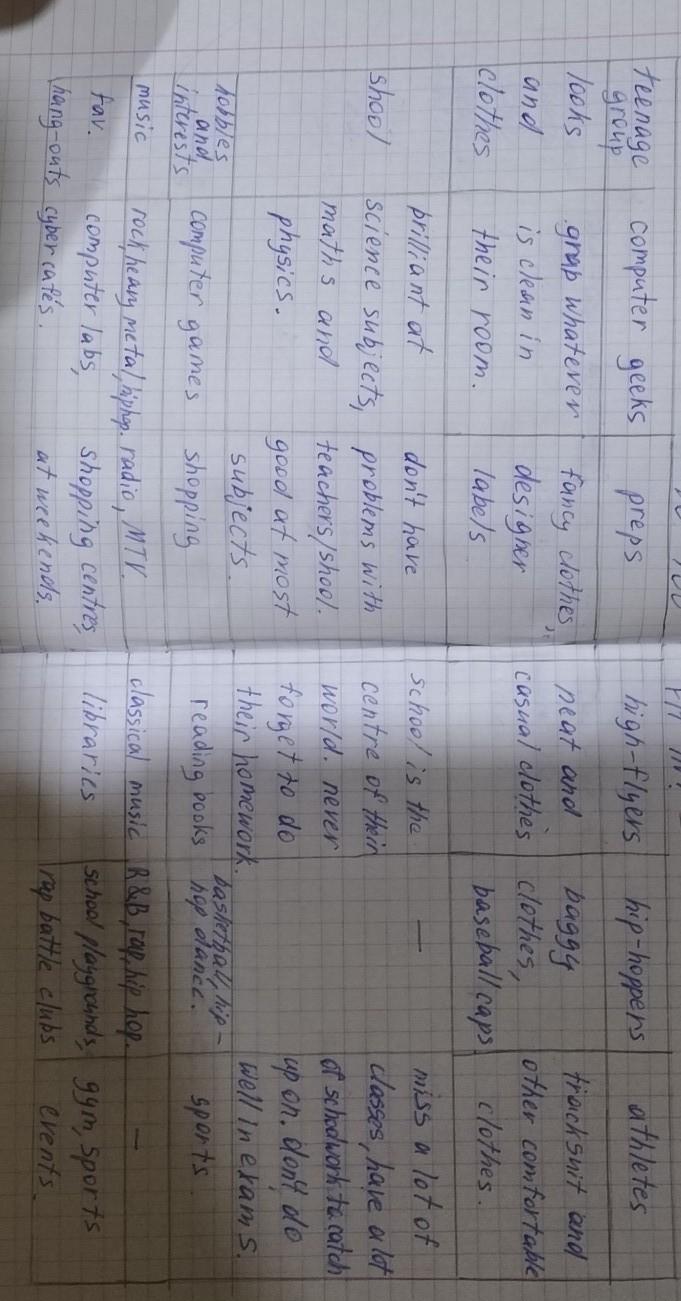 fit in?
teenage group
computer geeks
preps
high-flyers
hip-hoppers
athletes
looks and clothes
grab whatever
is clean in
their room.
fancy clothes,
designer
labels
neat and
casual clothes
baggy
clothes,
baseball caps
tracksuit and
other comfortable
clothes.
shool
prilliant at
science subjects,
maths and
physics.
don't have
problems with
teachers/shool.
good at most
subjects.
school is the
centre of their
world. never
forget to do
their homework.
—
miss a lot of
classes, have a lot
of schoolwork to catch
up on. don't do
well in exams.
hobbies
and
interests
computer games
shopping
reading books
basketball, hip-
hop dance.
sports
music
rock, heavy metal, hiphop.
radio, MTV.
classical music
R&B, rap, hip hop.
—
fav.
hang-outs
computer labs,
cyber cafés.
shopping centres,
at weekends.
libraries
school playgrounds,
rap battle clubs
gym, sports
events.